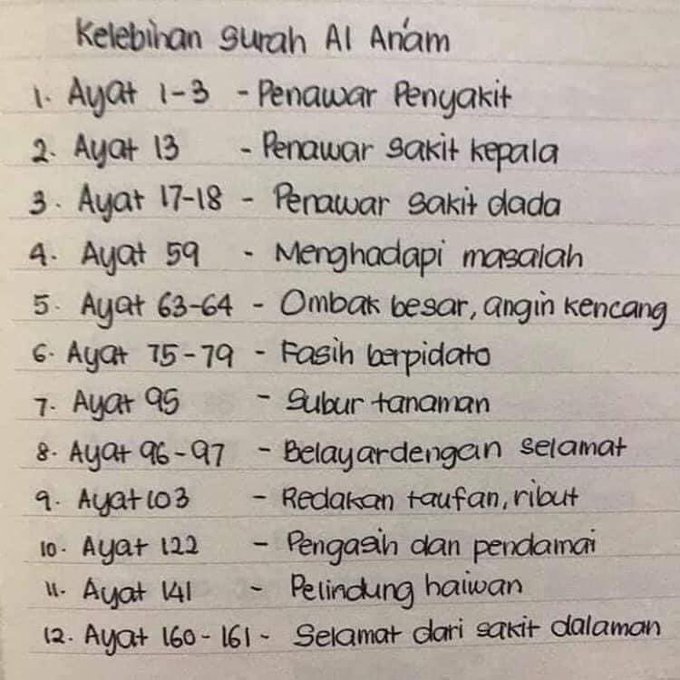 Kelebihan surah Al An'am
1. Ayat 1-3 - Penawar Penyakit
2. Ayat 13 - Penawar sakit kepala
3. Ayat 17-18 - Penawar sakit dada
4. Ayat 59 - Menghadapi masalah
5. Ayat 63-64 - Ombak besar, angin kencang
6. Ayat 75-79 - Fasih berpidato
7. Ayat 95 - Subur tanaman
8. Ayat 96-97 - Belayar dengan selamat
9. Ayat 103 - Redakan taufan, ribut
10. Ayat 122 - Pengasih dan pendamai
11. Ayat 141 - Pelindung haiwan
12. Ayat 160-161 - Selamat dari sakit dalaman